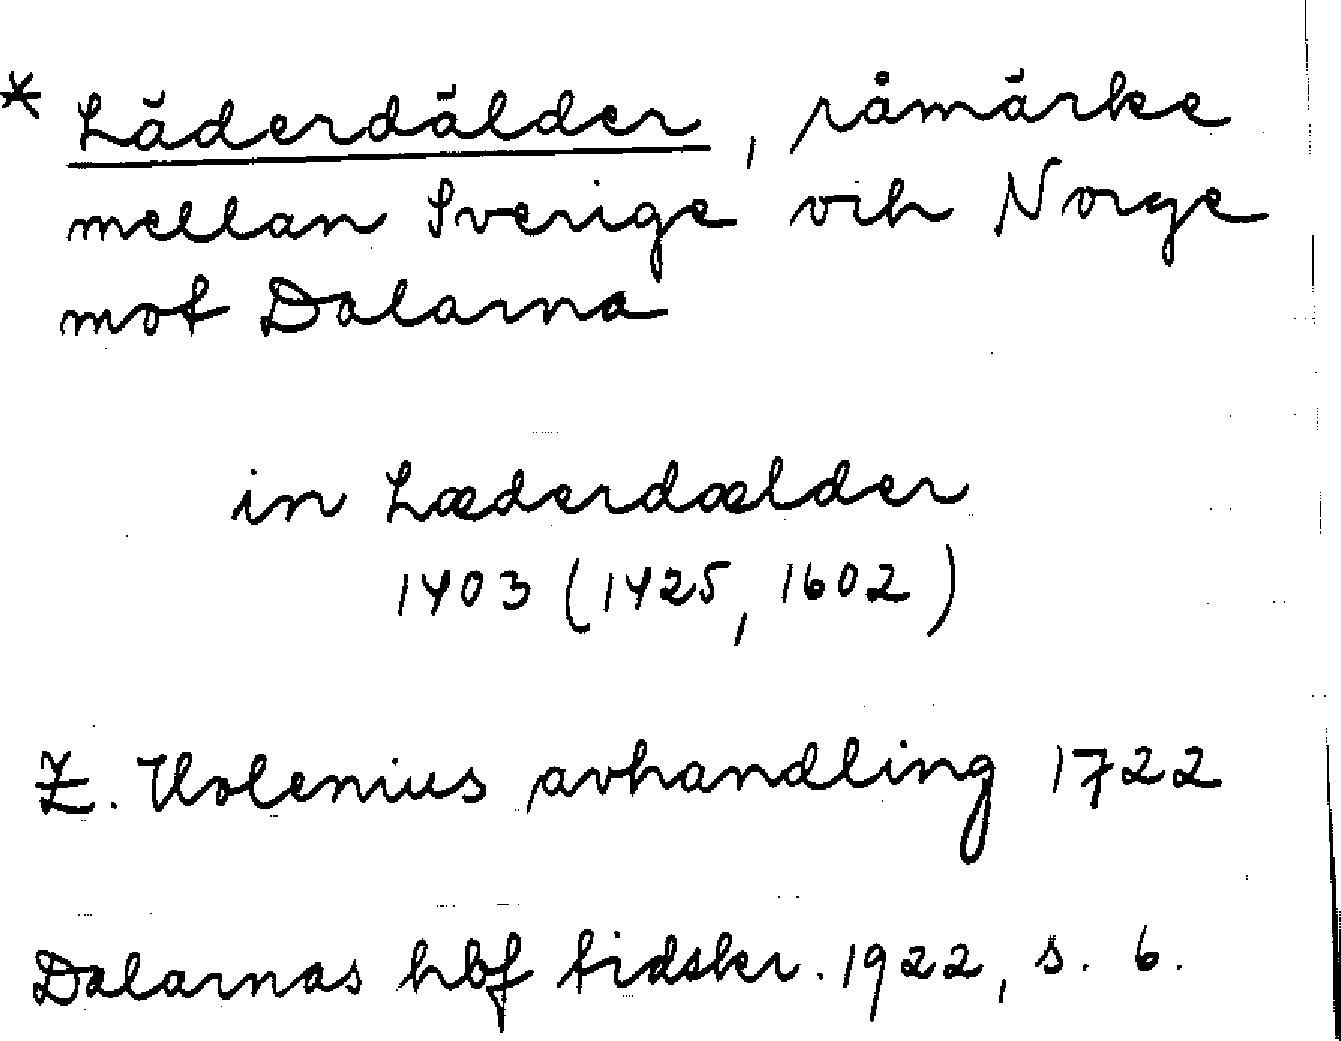 * Läderdälder, råmärke
mellan Sverige och Norge
mot Dalarna
in Læderdælder
1403 (1425, 1602)
Z. Holenius avhandling 1722
Dalarnas hbf tidskr. 1922, s. 6.